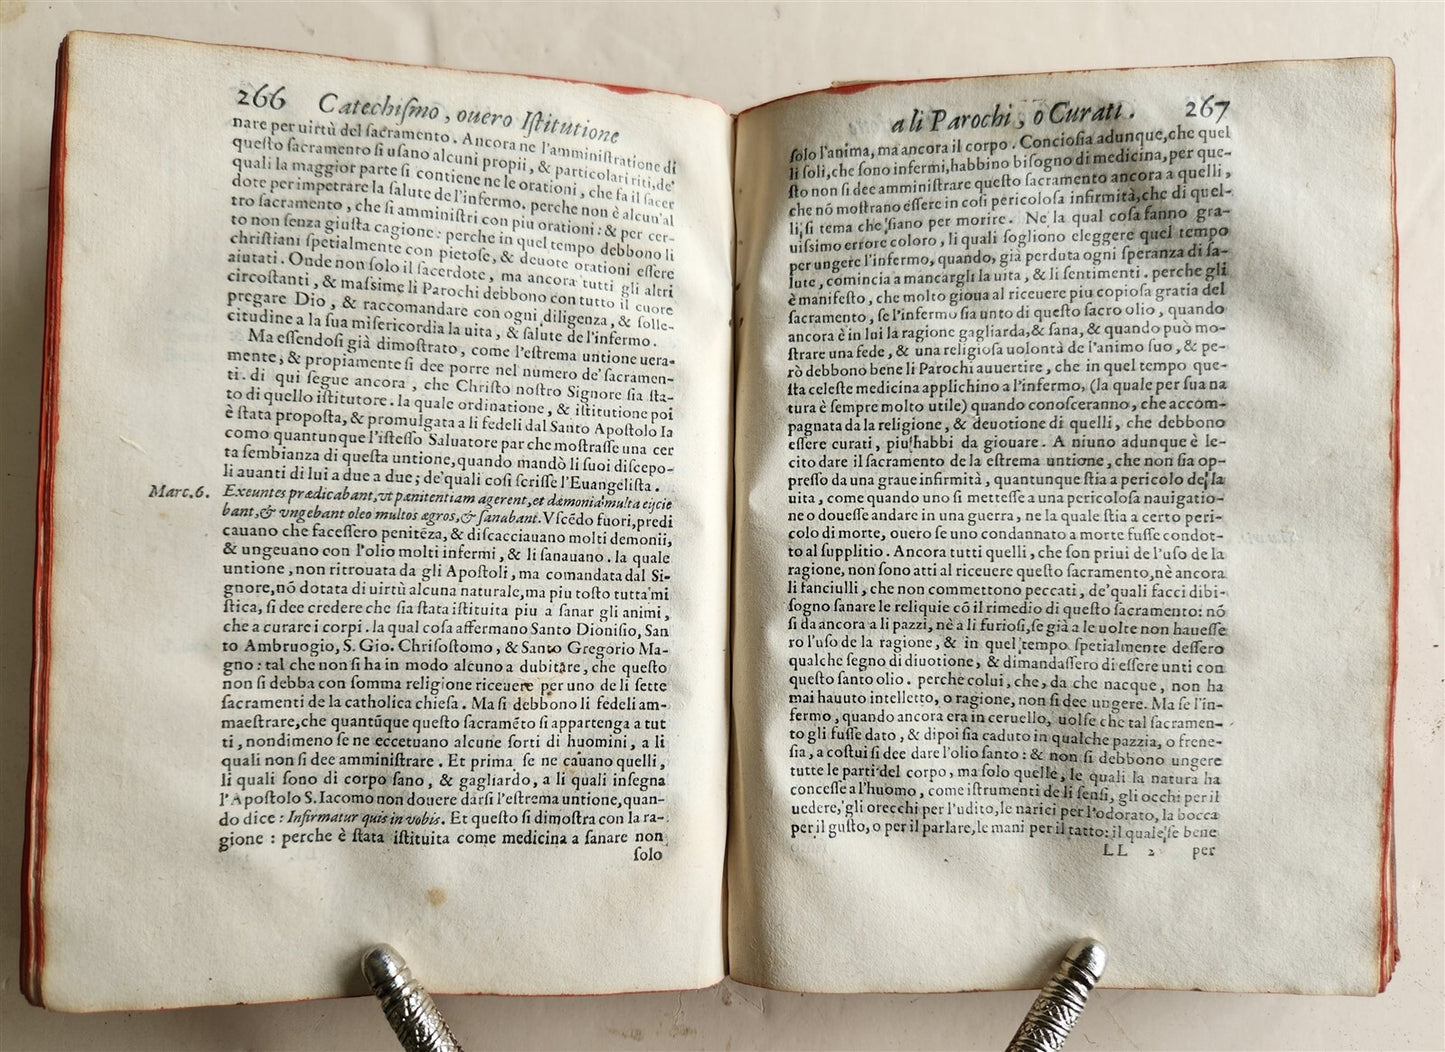 266 Catechiſmo, ouero Iſtitutione
nare per uirtù del ſacramento. Ancora ne l'amminiſtratione di
queſto ſacramento ſi uſano alcuni propii, & particolari riti, de'
quali la maggior parte ſi contiene ne le orationi, che fa il ſacer
dote per impetrare la ſalute de l'infermo. perche non è alcun'al
tro ſacramento, che ſi amminiſtri con piu orationi: & per cer-
to non ſenza giuſta cagione: perche in quel tempo debbono li
chriſtiani ſpetialmente con pietoſe, & deuote orationi eſſere
aiutati. Onde non ſolo il ſacerdote, ma ancora tutti gli altri
circoſtanti, & maſsime li Parochi debbono con tutto il cuore
pregare Dio, & raccomandare con ogni diligenza, & ſolle-
citudine a la ſua miſericordia la uita, & ſalute de l'infermo.
Ma eſſendoſi già dimoſtrato, come l'eſtrema untione uera-
mente, & propiamente ſi dee porre nel numero de' ſacramen-
ti. di qui ſegue ancora, che Chriſto noſtro Signore ſia ſta-
to di quello iſtitutore. la quale ordinatione, & iſtitutione poi
è ſtata propoſta, & promulgata a li fedeli dal Santo Apoſtolo Ia
como quantunque l'iſteſſo Saluatore par che moſtraſſe una cer
ta ſembianza di queſta untione, quando mandò li ſuoi diſcepo-
li auanti di lui a due a due; de' quali coſi ſcriſſe l'Euangeliſta.
Marc. 6. Exeuntes prædicabant, vt pænitentiam agerent, et dæmonia multa eijcie
bant, & vngebant oleo multos ægros, & ſanabant. Vſcẽdo fuori, predi
cauano che faceſſero penitẽza, & diſcacciauano molti demonii,
& ungeuano con l'olio molti infermi, & li ſanauano. la quale
untione, non ritrouata da gli Apoſtoli, ma comandata dal Si-
gnore, nõ dotata di uirtù alcuna naturale, ma piu toſto tutta mi
ſtica, ſi dee credere che ſia ſtata iſtituita piu a ſanar gli animi,
che a curare i corpi. la qual coſa affermano Santo Dioniſio, San
to Ambruogio, S. Gio. Chriſoſtomo, & Santo Gregorio Ma-
gno: tal che non ſi ha in modo alcuno a dubitare, che queſto
non ſi debba con ſomma religione riceuere per uno de li ſette
ſacramenti de la catholica chieſa. Ma ſi debbono li fedeli am-
maeſtrare, che quantũque queſto ſacramẽto ſi appartenga a tut
ti, nondimeno ſe ne eccetuano alcune ſorti di huomini, a li
quali non ſi dee amminiſtrare. Et prima ſe ne cauano quelli,
li quali ſono di corpo ſano, & gagliardo, a li quali inſegna
l'Apoſtolo S. Iacomo non douere darſi l'eſtrema untione, quan-
do dice: Infirmatur quis in vobis. Et queſto ſi dimoſtra con la ra-
gione: perche è ſtata iſtituita come medicina a ſanare non
ſolo
a li Parochi, o Curati. 267
ſolo l'anima, ma ancora il corpo. Concioſia adunque, che quel
li ſoli, che ſono infermi, habbino biſogno di medicina, per que-
ſto non ſi dee amminiſtrare queſto ſacramento ancora a quelli,
che nõ moſtrano eſſere in coſi pericoloſa infirmità, che di quel-
li, ſi tema che ſiano per morire. Ne la qual coſa fanno gra-
uiſsimo errore coloro, li quali ſogliono eleggere quel tempo
per ungere l'infermo, quando, già perduta ogni ſperanza di ſa-
lute, comincia a mancargli la uita, & li ſentimenti. perche gli
è manifeſto, che molto gioua al riceuere piu copioſa gratia del
ſacramento, ſe l'infermo ſia unto di queſto ſacro olio, quando
ancora è in lui la ragione gagliarda, & ſana, & quando può mo-
ſtrare una fede, & una religioſa uolontà de l'animo ſuo, & pe-
rò debbono bene li Parochi auuertire, che in quel tempo que-
ſta celeſte medicina applichino a l'infermo, (la quale per ſua na
tura è ſempre molto utile) quando conoſceranno, che accom-
pagnata da la religione, & deuotione di quelli, che debbono
eſſere curati, piu habbi da giouare. A niuno adunque è le-
cito dare il ſacramento de la eſtrema untione, che non ſia op-
preſſo da una graue infirmità, quantunque ſtia a pericolo de la
uita, come quando uno ſi metteſſe a una pericoloſa nauigatio-
ne o doueſſe andare in una guerra, ne la quale ſtia a certo peri-
colo di morte, ouero ſe uno condannato a morte fuſſe condot-
to al ſupplitio. Ancora tutti quelli, che ſon priui de l'uſo de la
ragione, non ſono atti al riceuere queſto ſacramento, nè ancora
li fanciulli, che non commettono peccati, de' quali facci dibi-
ſogno ſanare le reliquie cõ il rimedio di queſto ſacramento: nõ
ſi da ancora a li pazzi, nè a li furioſi, ſe già a le uolte non haueſſe
ro l'uſo de la ragione, & in quel tempo ſpetialmente deſſero
qualche ſegno di diuotione, & dimandaſſero di eſſere unti con
queſto ſanto olio. perche colui, che, da che nacque, non ha
mai hauuto intelletto, o ragione, non ſi dee ungere. Ma ſe l'in-
fermo, quando ancora era in ceruello, uolſe che tal ſacramen-
to gli fuſſe dato, & dipoi ſia caduto in qualche pazzia, o frene-
ſia, a coſtui ſi dee dare l'olio ſanto: & non ſi debbono ungere
tutte le parti del corpo, ma ſolo quelle, le quali la natura ha
conceſſe a l'huomo, come iſtrumenti de li ſenſi, gli occhi per il
uedere, gli orecchi per l'udito, le narici per l'odorato, la bocca
per il guſto, o per il parlare, le mani per il tatto: il quale ſe bene
LL 2 per